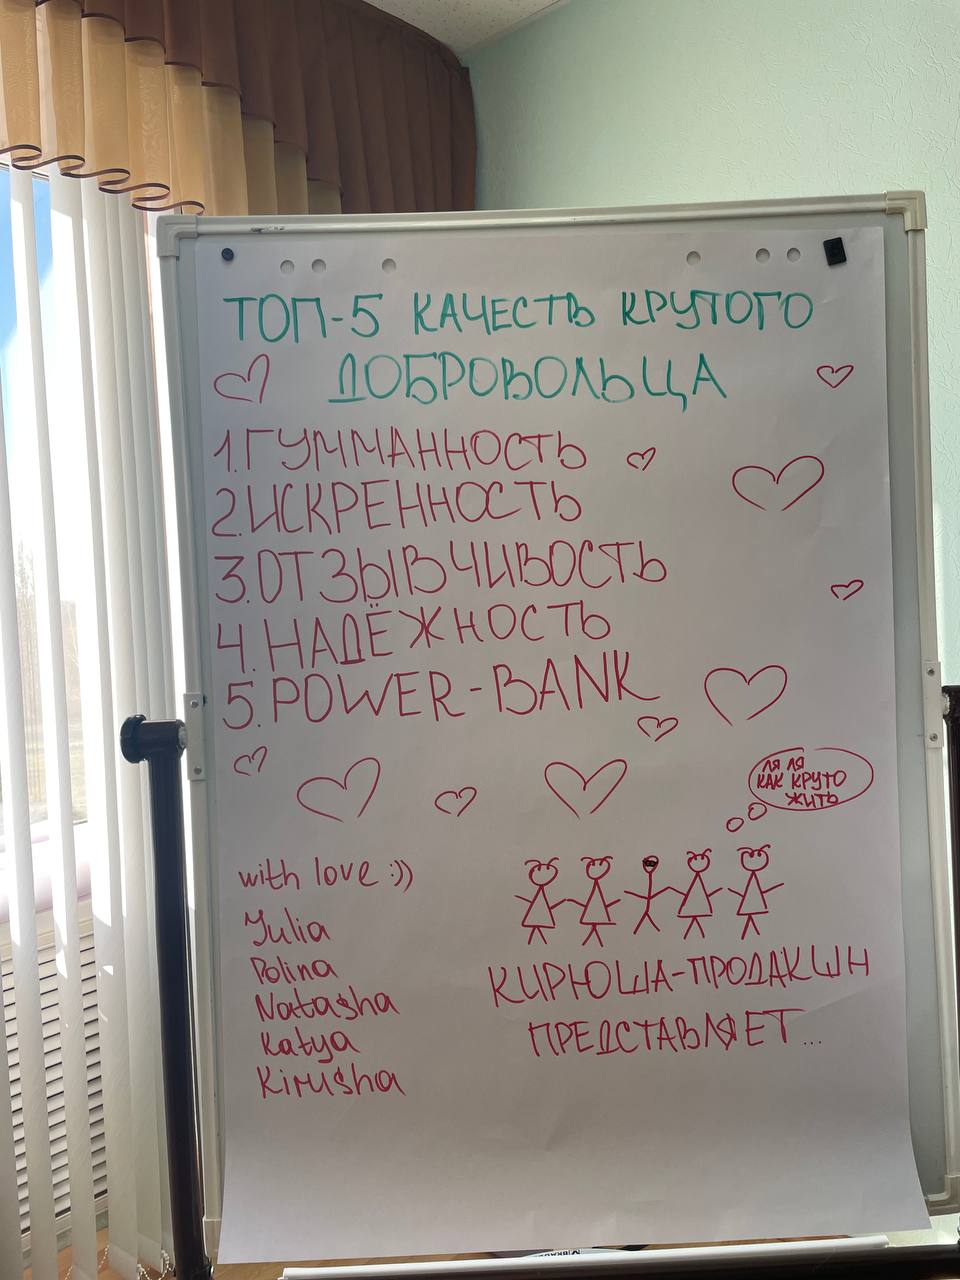 ТОП-5 КАЧЕСТЬ КРУТОГО
ДОБРОВОЛЬЦА
1.ГУММАННОСТЬ
2.ИСКРЕННОСТЬ
3.ОТЗЫВЧИВОСТЬ
4.НАДЁЖНОСТЬ
5.POWER-BANK
ЛЯ ЛЯ
КАК КРУТО
ЖИТЬ
with love :))
Yulia
Polina
Natasha
Katya
Kirusha
КИРЮША-ПРОДАКШН
ПРЕДСТАВЛЯЕТ...